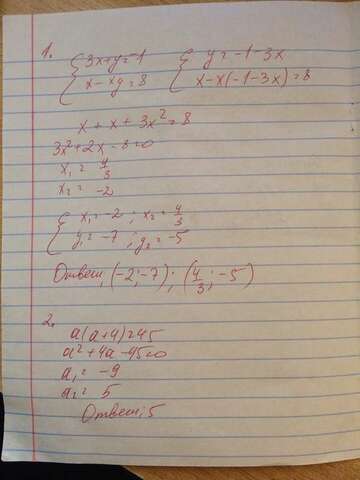 1.
{ 3x+y=-1 { y=-1-3x
{ x-xy=8 { x-x(-1-3x)=8
x+x+3x²=8
3x²+2x-8=0
x₁= 4/3
x₂= -2
{ x₁=-2 ; x₂= 4/3
{ y₁=-7 ; y₂=-5
Ответ: (-2;-7); (4/3; -5)
2.
a(a+4)=45
a²+4a-45=0
a₁= -9
a₂= 5
Ответ: 5